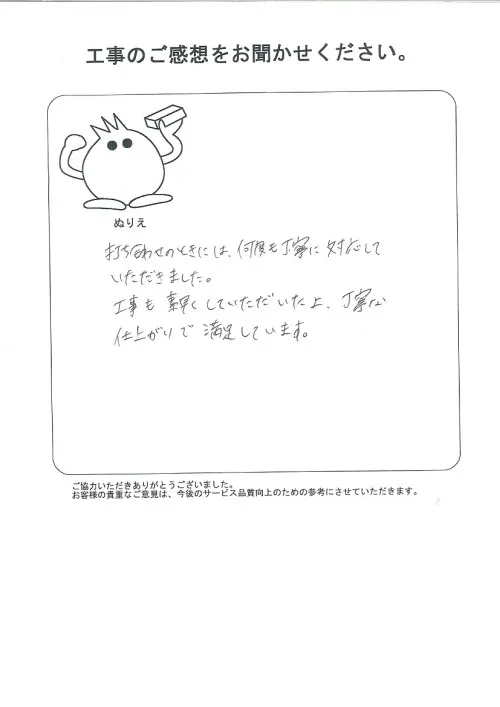 工事のご感想をお聞かせください。
ぬりえ
打ち合わせのときには、何度も丁寧に対応して
いただきました。
工事も素早くしていただいた上、丁寧な
仕上がりで満足しています。
ご協力いただきありがとうございました。
お客様の貴重なご意見は、今後のサービス品質向上のための参考にさせていただきます。